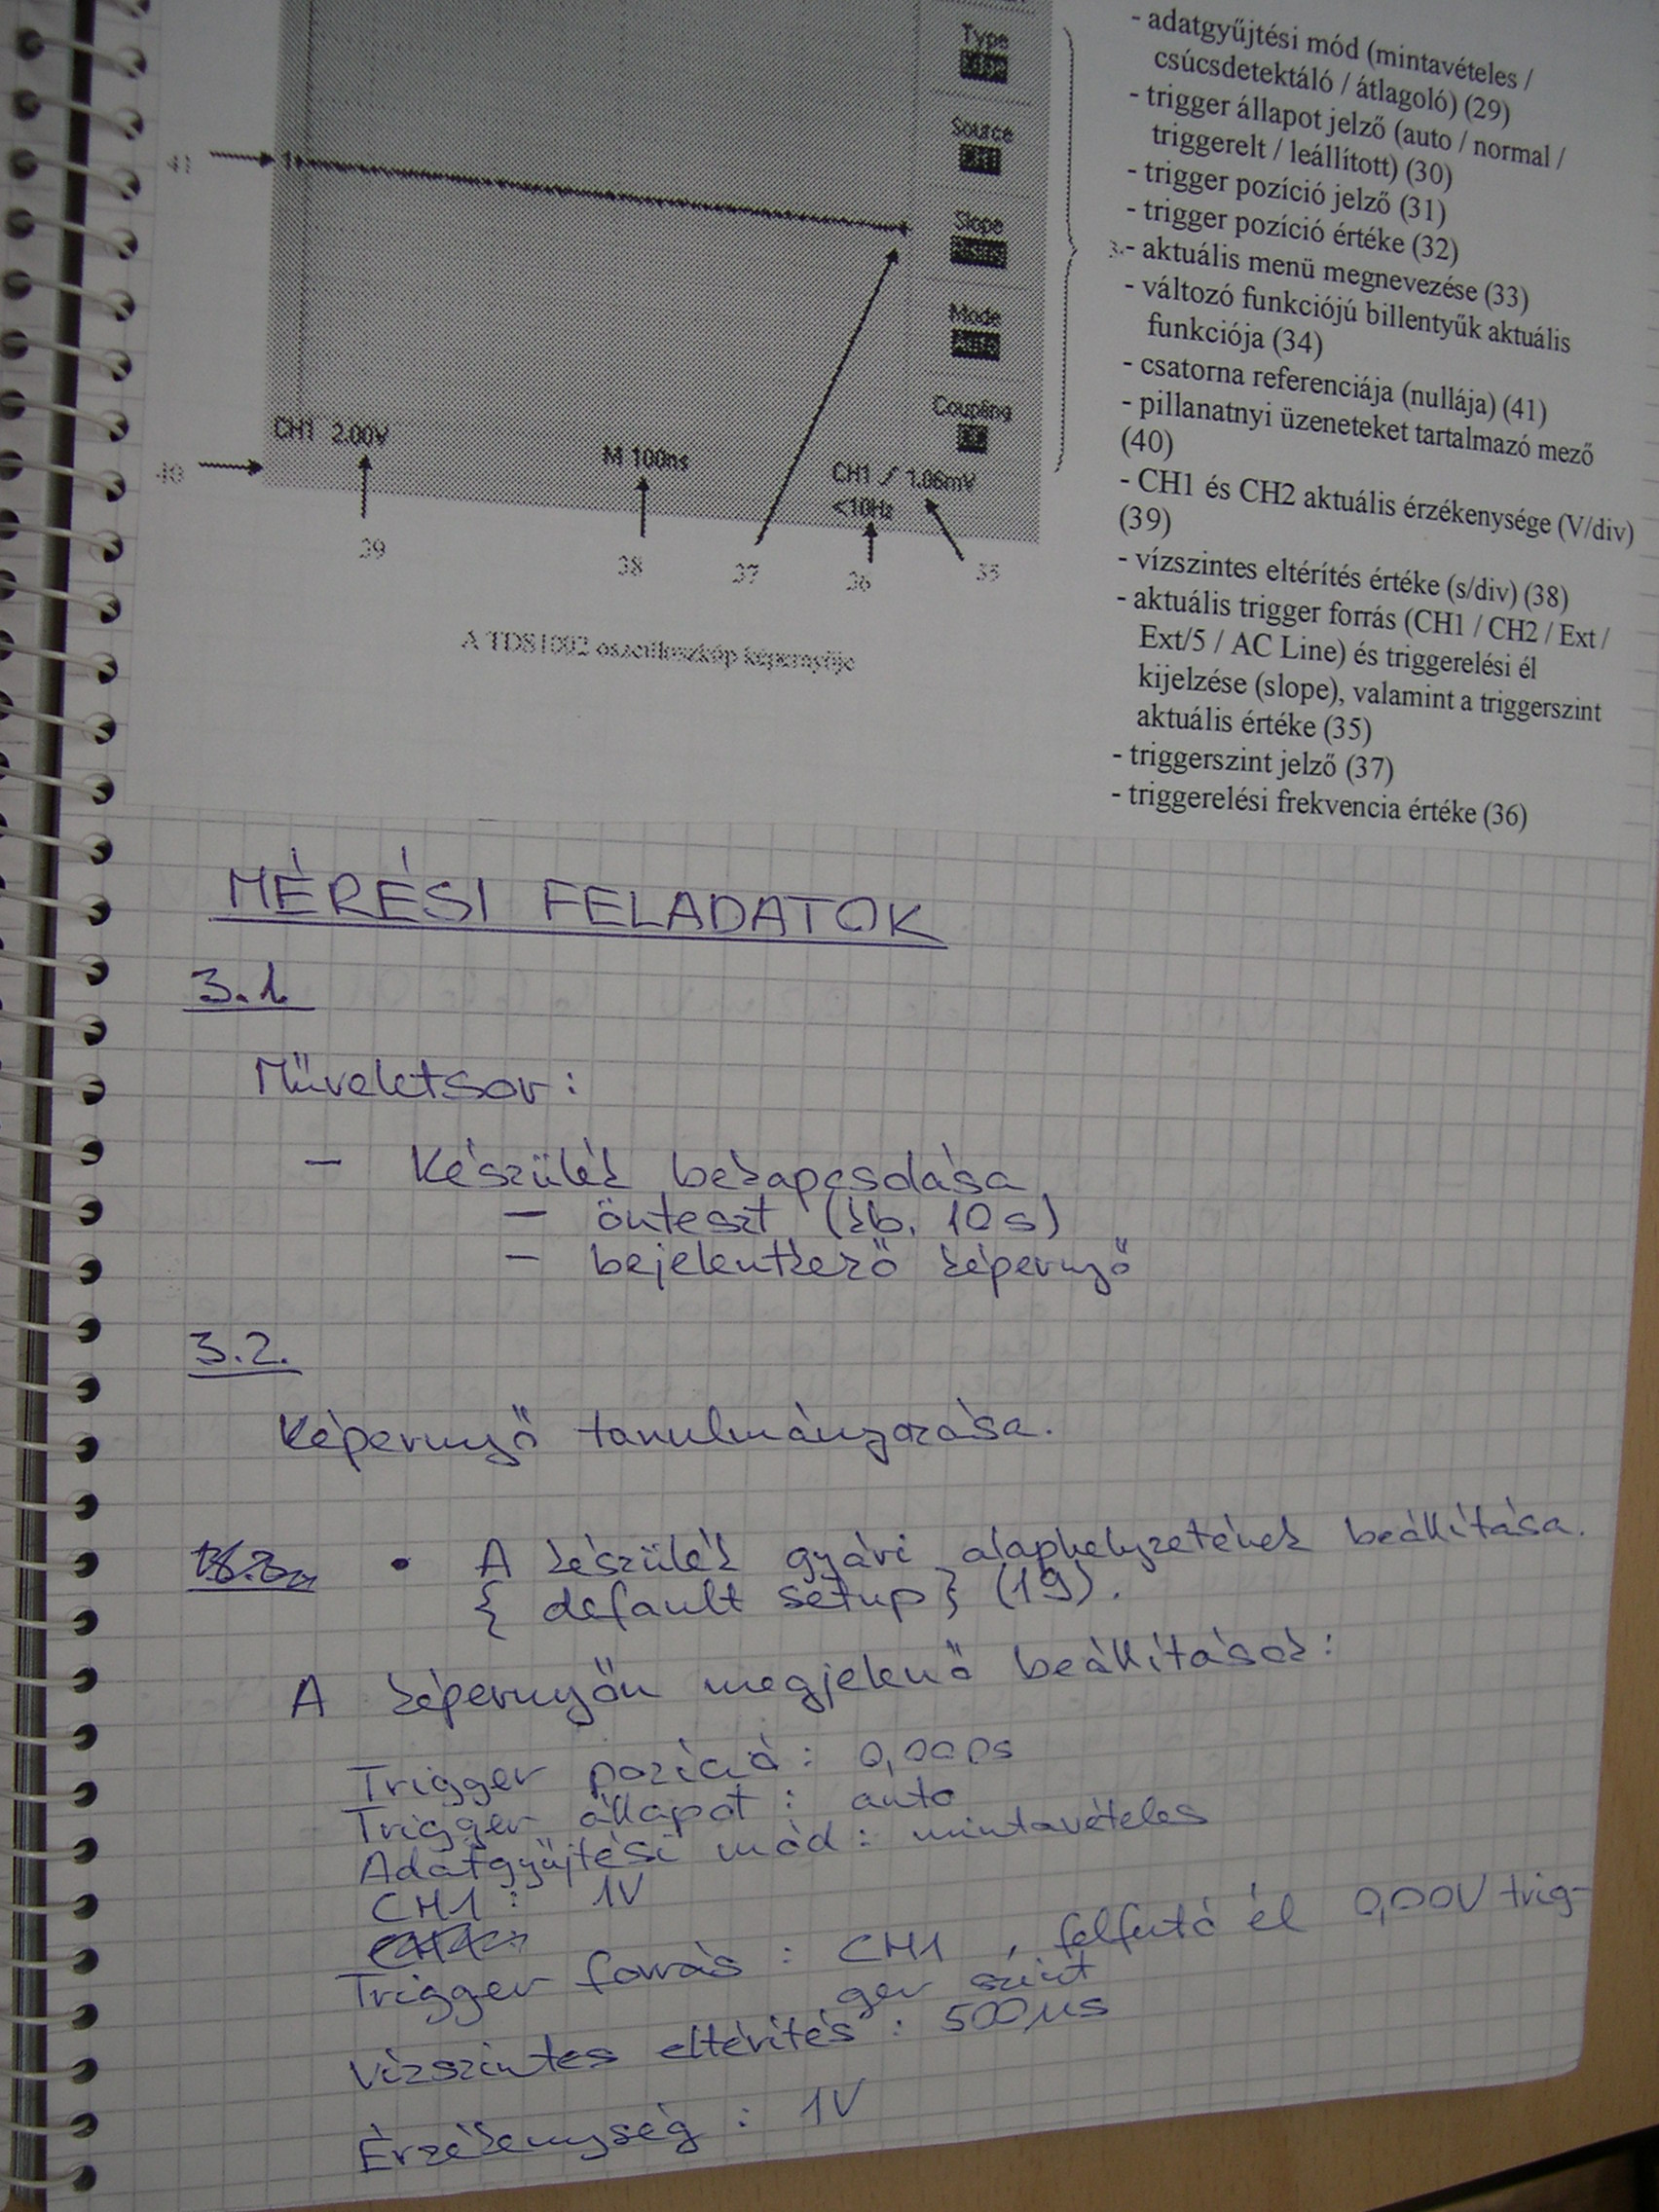 Type
Edge
Source
CH1
Slope
Rising
Mode
Auto
Coupling
41
CH1 2.00V
M 100ns
CH1 / 1.06mV
<10Hz
40
39
38
37
36
35
A TDS1002 oszcilloszkóp képernyője
- adatgyűjtési mód (mintavételes /
csúcsdetektáló / átlagoló) (29)
- trigger állapot jelző (auto / normal /
triggerelt / leállított) (30)
- trigger pozíció jelző (31)
- trigger pozíció értéke (32)
- aktuális menü megnevezése (33)
- változó funkciójú billentyűk aktuális
funkciója (34)
- csatorna referenciája (nullája) (41)
- pillanatnyi üzeneteket tartalmazó mező
(40)
- CH1 és CH2 aktuális érzékenysége (V/div)
(39)
- vízszintes eltérítés értéke (s/div) (38)
- aktuális trigger forrás (CH1 / CH2 / Ext /
Ext/5 / AC Line) és triggerelési él
kijelzése (slope), valamint a triggerszint
aktuális értéke (35)
- triggerszint jelző (37)
- triggerelési frekvencia értéke (36)
MÉRÉSI FELADATOK
3.1.
Műveletsor:
- Készülék bekapcsolása
- önteszt (kb. 10s)
- bejelentkező képernyő
3.2.
Képernyő tanulmányozása.
• A készülék gyári alaphelyzetének beállítása.
{ default setup } (19).
A képernyőn megjelenő beállítások:
Trigger pozíció: 0,00ps
Trigger állapot: auto
Adatgyűjtési mód: mintavételes
CH1: 1V
Trigger forrás: CH1, felfutó él 0,00V trig-
ger szint
Vízszintes eltérítés: 500µs
Érzékenység: 1V